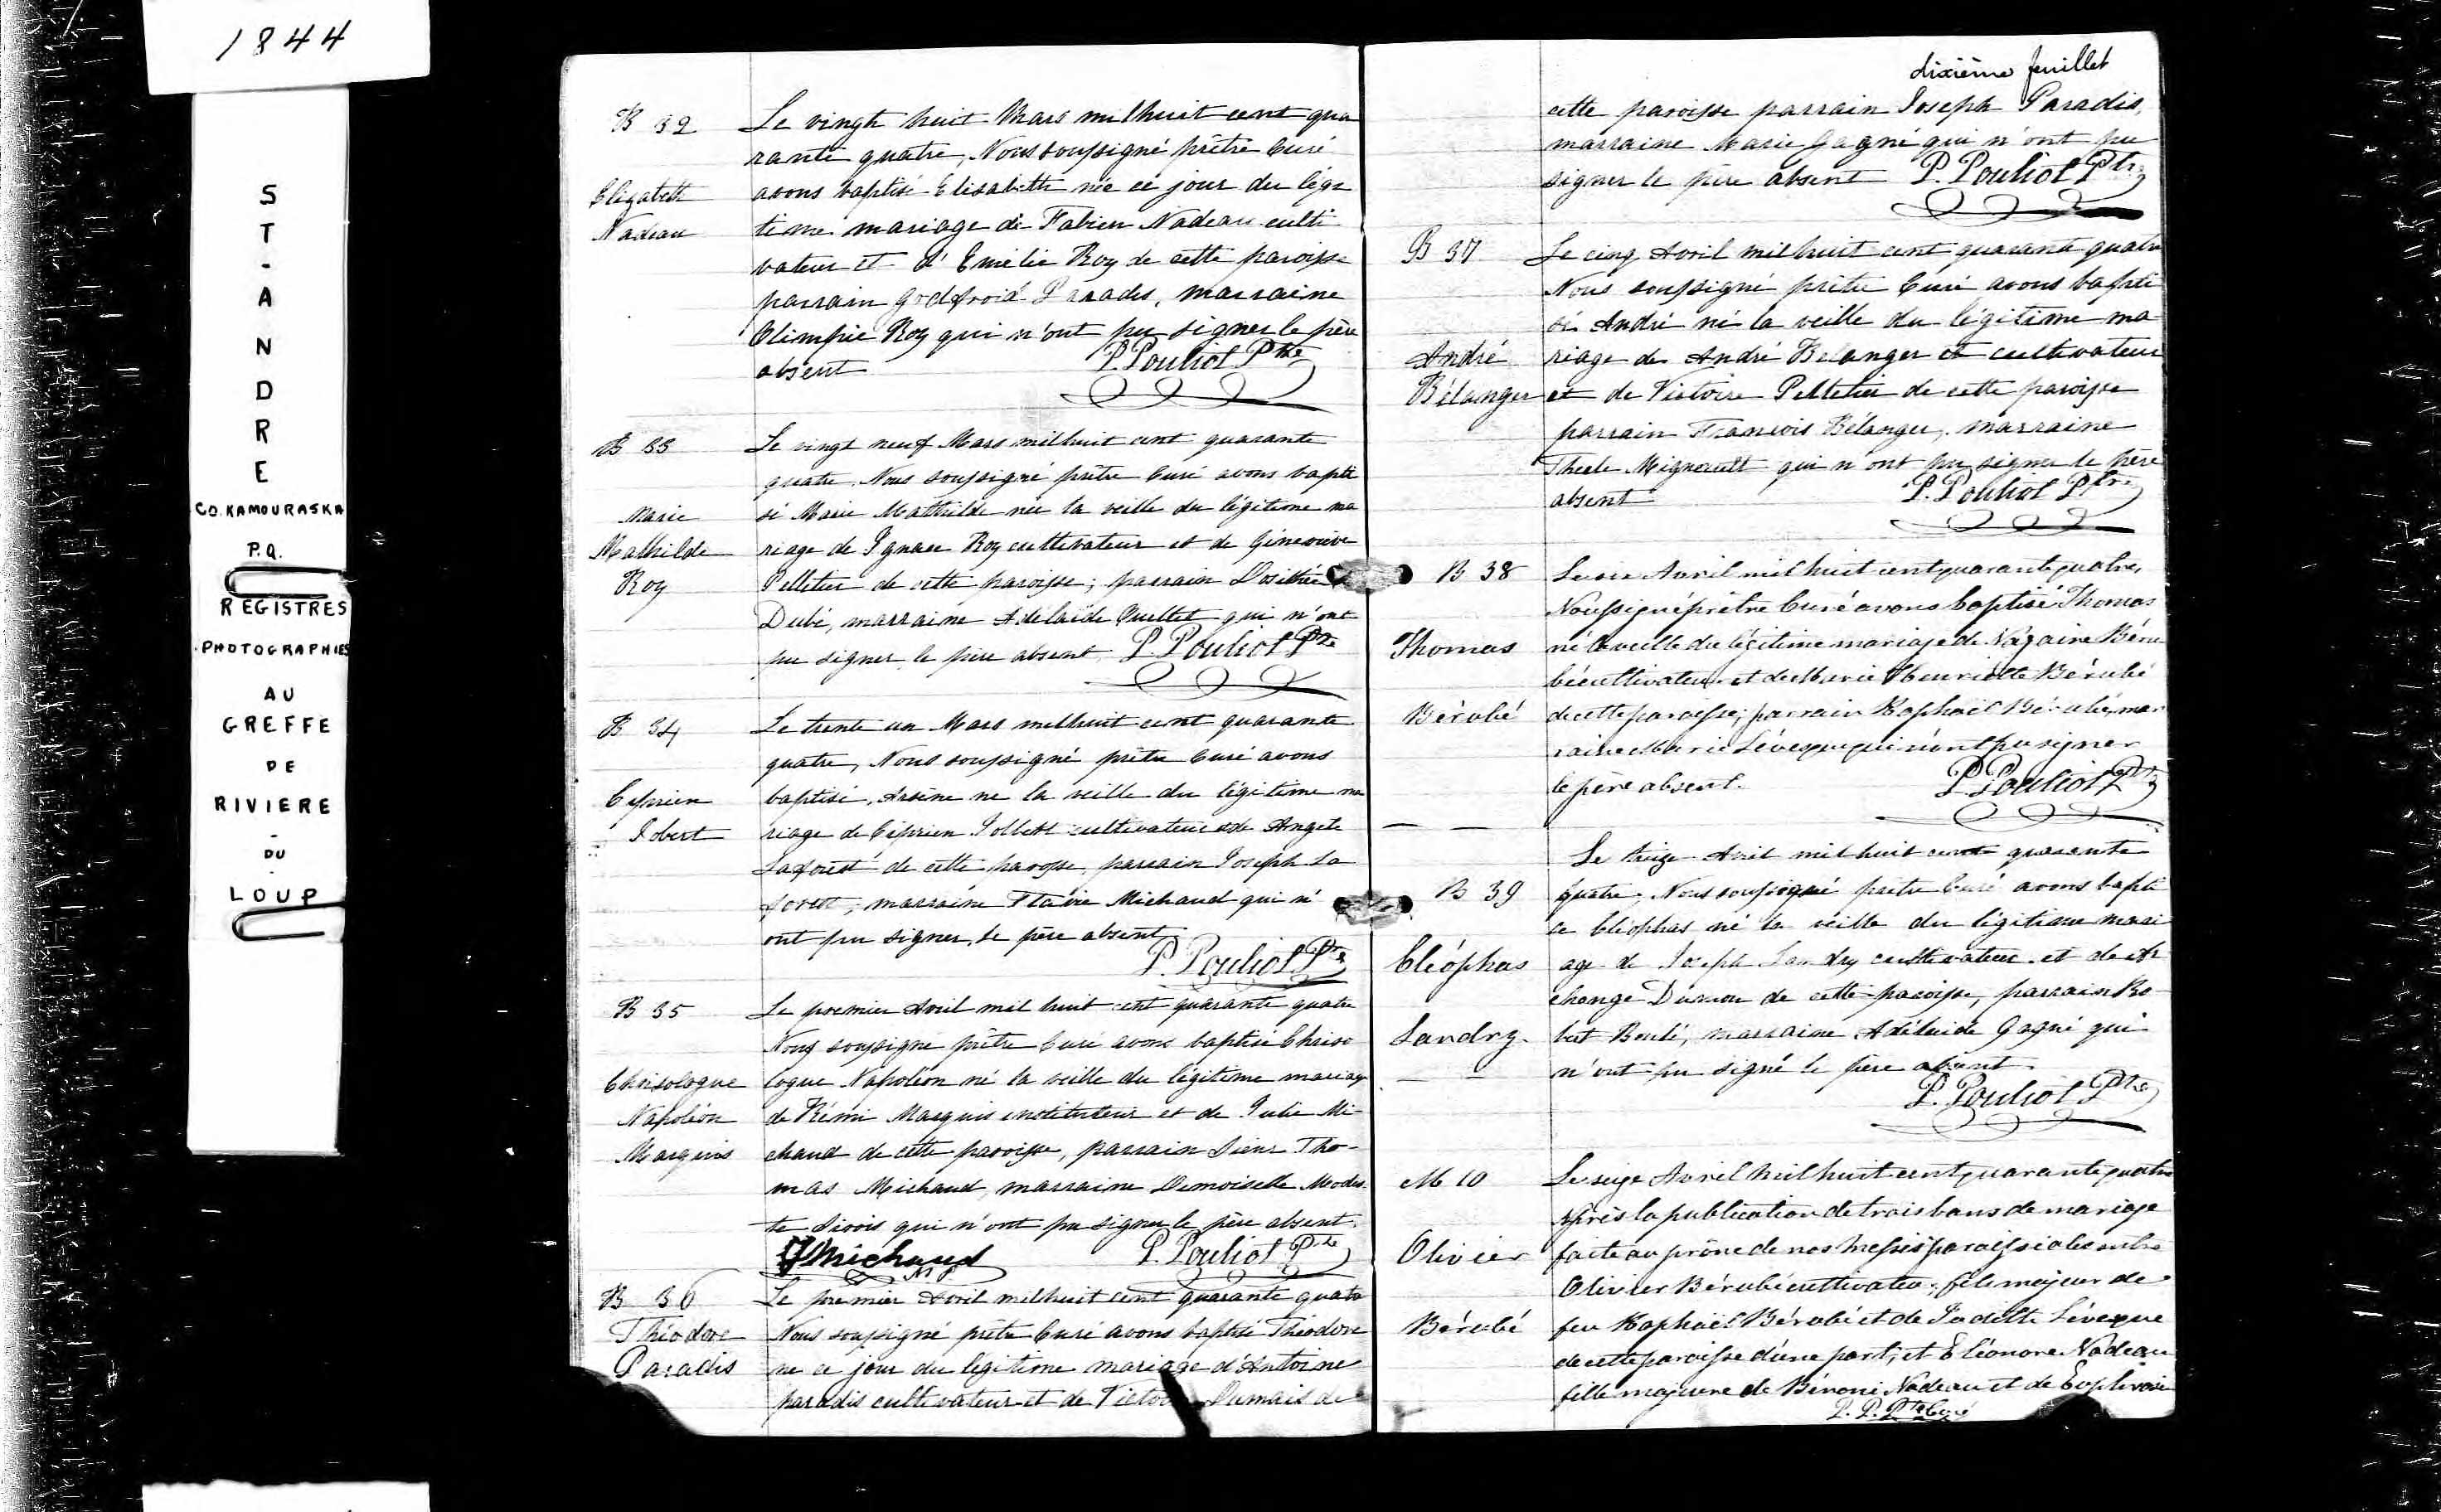 1844
S
T
-
A
N
D
R
E
CO. KAMOURASKA
P.Q.
REGISTRES
PHOTOGRAPHIES
AU
GREFFE
DE
RIVIERE
-
DU
-
LOUP
B 32
Elizabeth
Nadeau
Le vingt huit Mars mil huit cent qua
rante quatre, Nous soussigné prêtre Curé
avons baptisé Elisabeth née ce jour du légi
time mariage de Fabien Nadeau culti
vateur et d'Emélie Roy de cette paroisse
parrain Godfroid Paradis, marraine
Olimpie Roy qui n'ont pu signer le père
absent P. Pouliot Ptre
B 33
Marie
Mathilde
Roy
Le vingt neuf Mars mil huit cent quarante
quatre, Nous soussigné prêtre Curé avons bapti
sé Marie Mathilde née la veille du légitime ma
riage de Ignace Roy cultivateur et de Geneviève
Pelletier de cette paroisse; parrain Dosithée
Dubé, marraine Adélaïde Ouellet qui n'ont
pu signer le père absent P. Pouliot Ptre
B 34
Ciprien
Jobert
Le trente un Mars mil huit cent quarante
quatre, Nous soussigné prêtre Curé avons
baptisé, Arsène né la veille du légitime ma
riage de Ciprien Jolbert cultivateur et de Angele
Laforest de cette paroisse, parrain Joseph La
forest, marraine Flavie Michaud qui n'
ont pu signer, le père absent
P. Pouliot Ptre
B 35
Chrisologue
Napoléon
Marquis
Le premier Avril mil huit cent quarante quatre
Nous soussigné prêtre Curé avons baptisé Chriso
logue Napoléon né la veille du légitime mariage
de Rémi Marquis instituteur et de Julie Mi-
chaud de cette paroisse, parrain Sieur Tho-
mas Michaud, marraine Demoiselle Modes-
te Sirois qui n'ont pu signer le père absent.
Michaud P. Pouliot Ptre
B 36
Théodore
Paradis
Le premier Avril mil huit cent quarante quatre
Nous soussigné prêtre Curé avons baptisé Théodore
né ce jour du légitime mariage d'Antoine
paradis cultivateur et de Victoire Dumais de
dixième feuillet
cette paroisse parrain Joseph Paradis,
marraine Marie Gagné qui n'ont pu
signer le père absent P. Pouliot Ptre
B 37
André
Bélanger
Le cinq Avril mil huit cent quarante quatre
Nous soussigné prêtre Curé avons bapti
sé André né la veille du légitime ma
riage de André Belanger et cultivateur
et de Victoire Pelletier de cette paroisse
parrain Francois Bélanger, marraine
Thecle Migneault qui n'ont pu signer le père
absent P. Pouliot Ptre
B 38
Thomas
Bérubé
Le six Avril mil huit cent quarante quatre,
Noussigné prêtre Curé avons baptisé Thomas
né la veille du légitime mariage de Nazaire Béru
bé cultivateur et de Marie Henriette Bérubé
de cette paroisse; parrain Raphaël Bérubé, mar
raine Marie Lévesque qui n'ont pu signer
le père absent.
P. Pouliot Ptre
B 39
Cléophas
Landry.
Le treize Avril mil huit cent quarente
quatre, Nous soussigné prêtre Curé avons bapti
sé Cléophas né la veille du légitime mari
age de Joseph Landry cultivateur et de Ar
change Dumon de cette paroisse, parrain Ro
bert Boulé, marraine Adélaide Gagné qui
n'ont pu signé le père absent.
P. Pouliot Ptre
M 10
Olivier
Bérubé
Le seize Avril mil huit cent quarante quatre
après la publication de trois bans de mariage
faite au prône de nos Messes paroissiales entre
Olivier Bérubé cultivateur, fils majeur de
feu Raphaël Bérubé et de Judithe Lévesque
de cette paroisse d'une part, et Eléonore Nadeau
fille majeure de Bénoni Nadeau et de Euphrosie
P. P. Ptre Curé